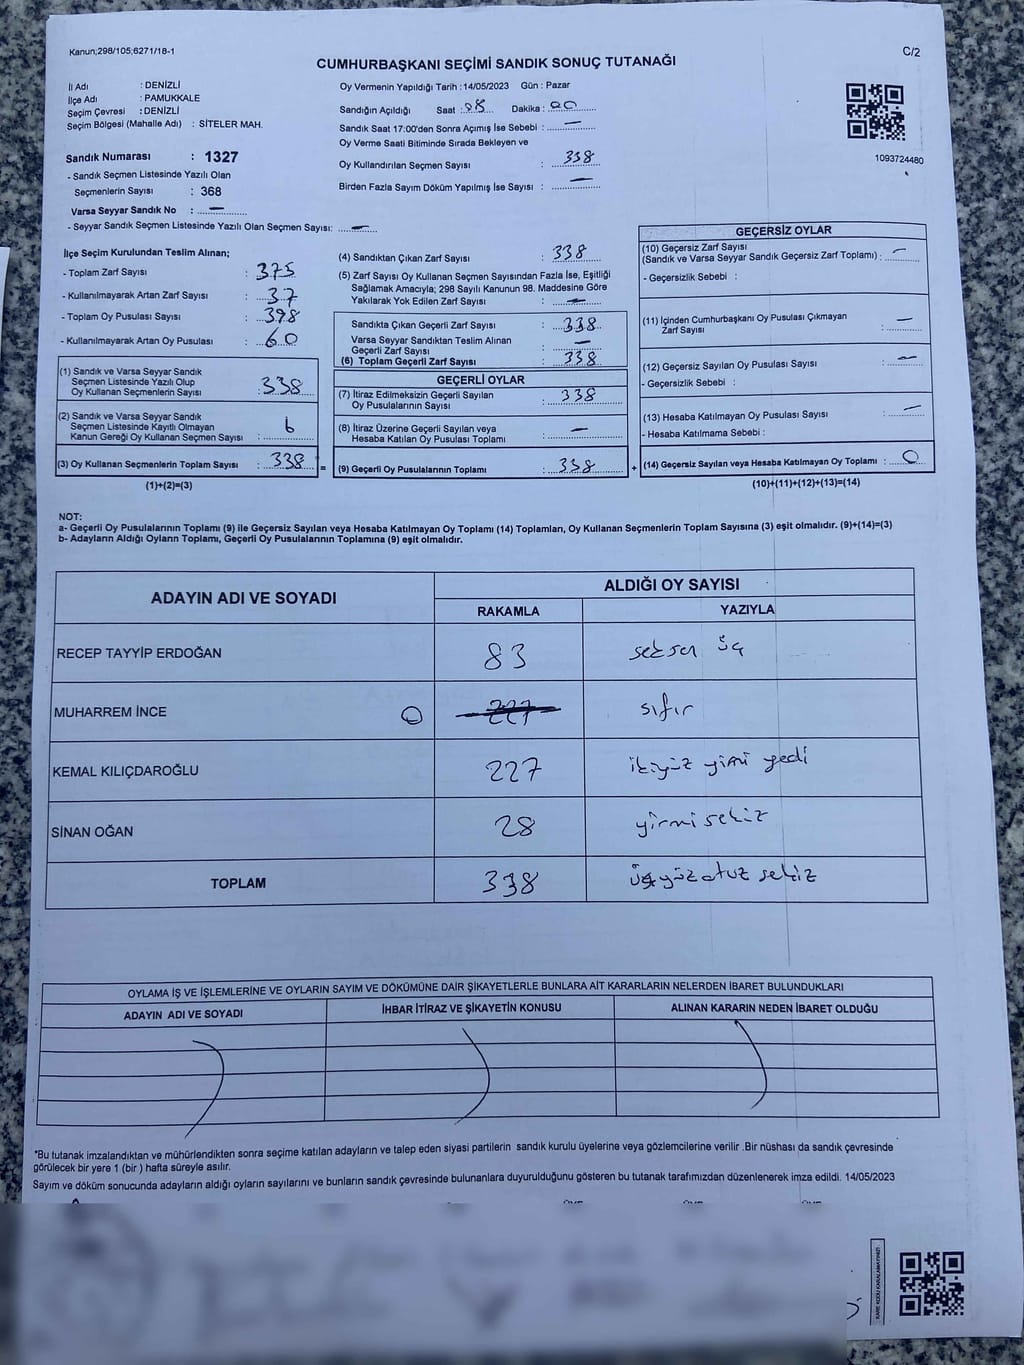 Kanun;298/105;6271/18-1
C/2
CUMHURBAŞKANI SEÇİMİ SANDIK SONUÇ TUTANAĞI
İl Adı : DENİZLİ
İlçe Adı : PAMUKKALE
Seçim Çevresi : DENİZLİ
Seçim Bölgesi (Mahalle Adı) : SİTELER MAH.
Sandık Numarası : 1327
- Sandık Seçmen Listesinde Yazılı Olan
Seçmenlerin Sayısı : 368
Varsa Seyyar Sandık No : —
- Seyyar Sandık Seçmen Listesinde Yazılı Olan Seçmen Sayısı: —
Oy Vermenin Yapıldığı Tarih :14/05/2023 Gün : Pazar
Sandığın Açıldığı Saat : 08 Dakika : 00
Sandık Saat 17:00'den Sonra Açımış İse Sebebi : —
Oy Verme Saati Bitiminde Sırada Bekleyen ve
Oy Kullandırılan Seçmen Sayısı : 338
Birden Fazla Sayım Döküm Yapılmış İse Sayısı : —
1093724480
İlçe Seçim Kurulundan Teslim Alınan;
- Toplam Zarf Sayısı : 375
- Kullanılmayarak Artan Zarf Sayısı : 37
- Toplam Oy Pusulası Sayısı : 398
- Kullanılmayarak Artan Oy Pusulası : 60
(1) Sandık ve Varsa Seyyar Sandık
Seçmen Listesinde Yazılı Olup
Oy Kullanan Seçmenlerin Sayısı : 338
(2) Sandık ve Varsa Seyyar Sandık
Seçmen Listesinde Kayıtlı Olmayan
Kanun Gereği Oy Kullanan Seçmen Sayısı :
(3) Oy Kullanan Seçmenlerin Toplam Sayısı : 338
(1)+(2)=(3)
(4) Sandıktan Çıkan Zarf Sayısı : 338
(5) Zarf Sayısı Oy Kullanan Seçmen Sayısından Fazla İse, Eşitliği
Sağlamak Amacıyla; 298 Sayılı Kanunun 98. Maddesine Göre
Yakılarak Yok Edilen Zarf Sayısı : —
Sandıkta Çıkan Geçerli Zarf Sayısı : 338
Varsa Seyyar Sandıktan Teslim Alınan
Geçerli Zarf Sayısı : —
(6) Toplam Geçerli Zarf Sayısı : 338
GEÇERLİ OYLAR
(7) İtiraz Edilmeksizin Geçerli Sayılan
Oy Pusulalarının Sayısı : 338
(8) İtiraz Üzerine Geçerli Sayılan veya
Hesaba Katılan Oy Pusulası Toplamı : —
= (9) Geçerli Oy Pusulalarının Toplamı : 338
GEÇERSİZ OYLAR
(10) Geçersiz Zarf Sayısı
(Sandık ve Varsa Seyyar Sandık Geçersiz Zarf Toplamı) : —
- Geçersizlik Sebebi :
(11) İçinden Cumhurbaşkanı Oy Pusulası Çıkmayan
Zarf Sayısı : —
(12) Geçersiz Sayılan Oy Pusulası Sayısı : —
- Geçersizlik Sebebi :
(13) Hesaba Katılmayan Oy Pusulası Sayısı : —
- Hesaba Katılmama Sebebi :
+ (14) Geçersiz Sayılan veya Hesaba Katılmayan Oy Toplamı : 0
(10)+(11)+(12)+(13)=(14)
NOT:
a- Geçerli Oy Pusulalarının Toplamı (9) ile Geçersiz Sayılan veya Hesaba Katılmayan Oy Toplamı (14) Toplamları, Oy Kullanan Seçmenlerin Toplam Sayısına (3) eşit olmalıdır. (9)+(14)=(3)
b- Adayların Aldığı Oyların Toplamı, Geçerli Oy Pusulalarının Toplamına (9) eşit olmalıdır.
ADAYIN ADI VE SOYADI
ALDIĞI OY SAYISI
RAKAMLA YAZIYLA
RECEP TAYYİP ERDOĞAN 83 seksen üç
MUHARREM İNCE 0 227 sıfır
KEMAL KILIÇDAROĞLU 227 ikiyüz yimi yedi
SİNAN OĞAN 28 yirmi sekiz
TOPLAM 338 üçyüzotuz sekiz
OYLAMA İŞ VE İŞLEMLERİNE VE OYLARIN SAYIM VE DÖKÜMÜNE DAİR ŞİKAYETLERLE BUNLARA AİT KARARLARIN NELERDEN İBARET BULUNDUKLARI
ADAYIN ADI VE SOYADI İHBAR İTİRAZ VE ŞİKAYETİN KONUSU ALINAN KARARIN NEDEN İBARET OLDUĞU
*Bu tutanak imzalandıktan ve mühürlendikten sonra seçime katılan adayların ve talep eden siyasi partilerin sandık kurulu üyelerine veya gözlemcilerine verilir .Bir nüshası da sandık çevresinde
görülecek bir yere 1 (bir ) hafta süreyle asılır.
Sayım ve döküm sonucunda adayların aldığı oyların sayılarını ve bunların sandık çevresinde bulunanlara duyurulduğunu gösteren bu tutanak tarafımızdan düzenlenerek imza edildi. 14/05/2023